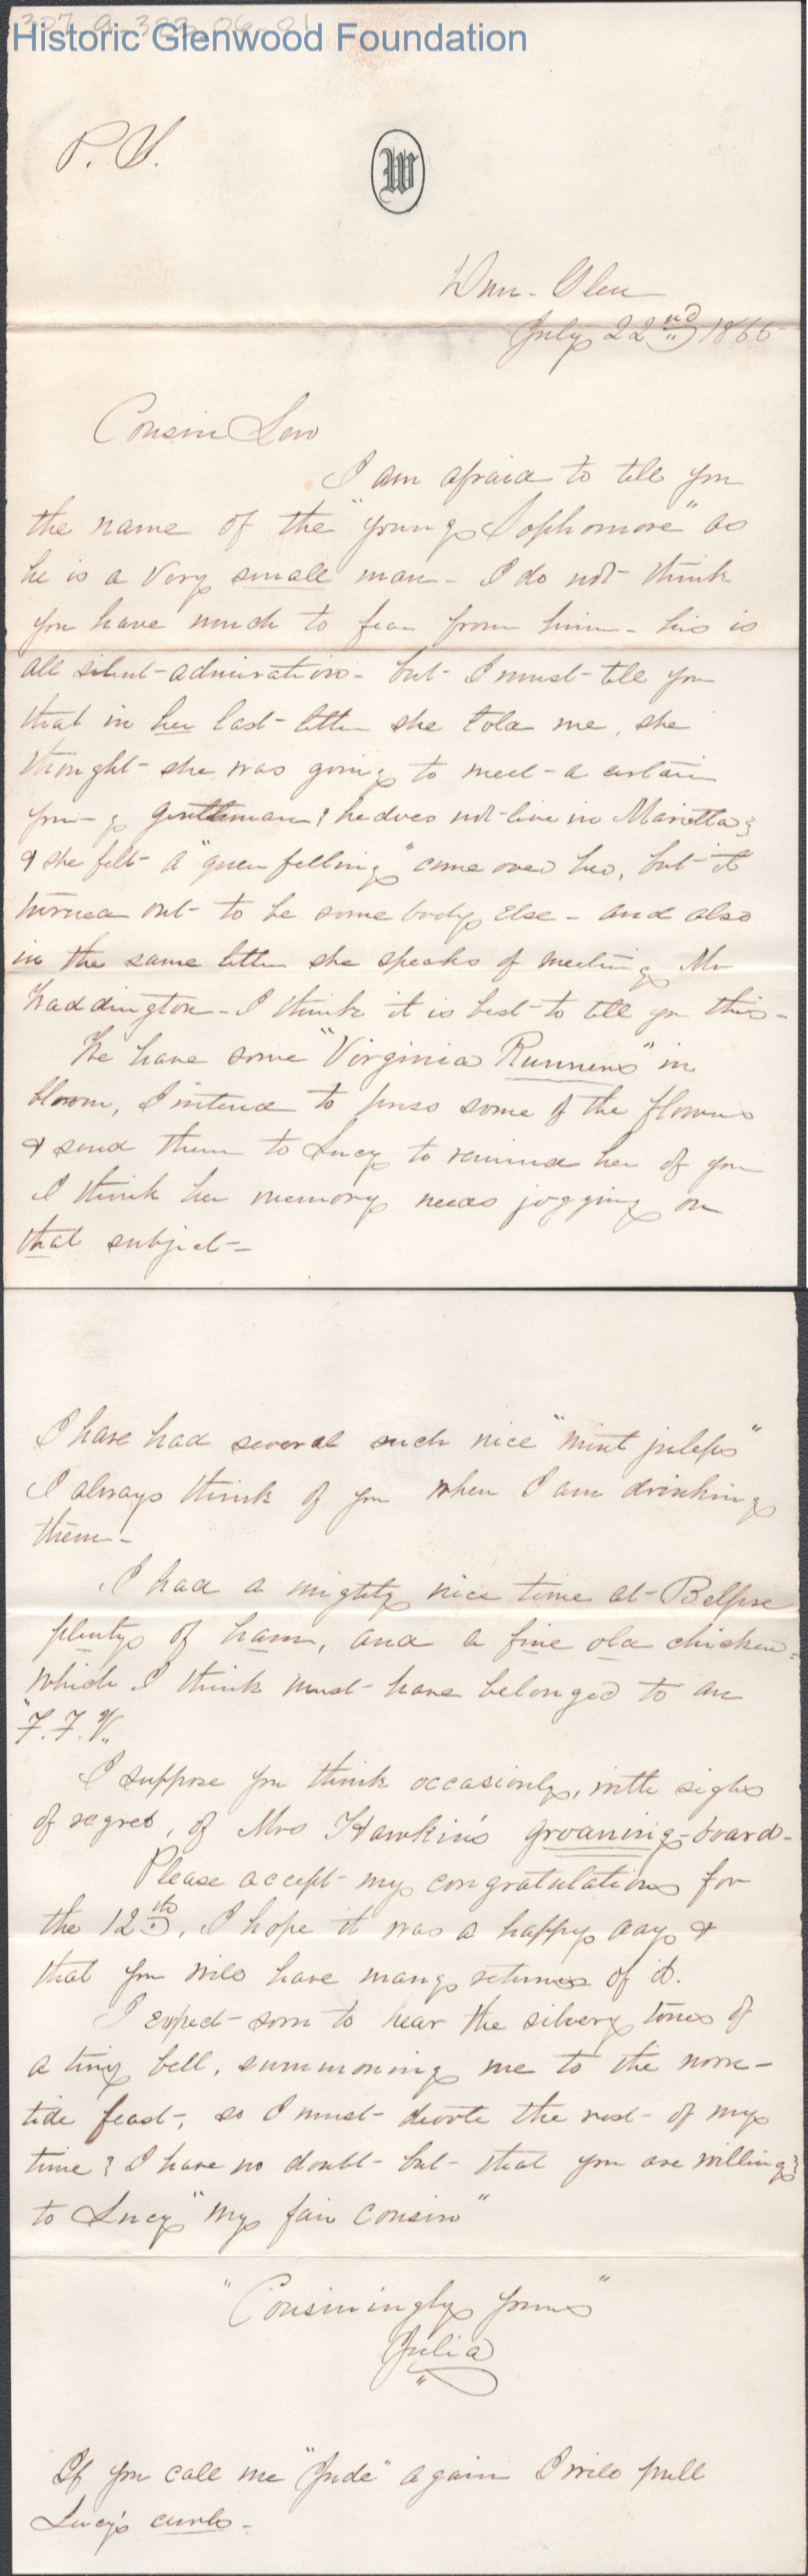 307.9.322.06.01
Historic Glenwood Foundation
P. S.
W
Dun-Glen
July 22nd 1866
Cousin Lew
I am afraid to tell you
the name of the "young Sophomore" as
he is a very small man - I do not think
you have much to fear from him - his is
all silent admiration - but I must tell you
that in her last letter she told me, she
thought she was going to meet a certain
young gentleman (he does not live in Marietta)
& she felt a "queer felling" come over her, but it
turned out to be somebody else - and also
in the same letter she speaks of meeting Mr
Waddington - I think it is best to tell you this -
We have some "Virginia Runners" in
bloom, I intend to press some of the flowers
& send them to Lucy to remind her of you
I think her memory needs jogging on
that subject -
I have had several such nice "mint juleps"
I always think of you when I am drinking
them -
I had a mighty nice time at Belpre
plenty of ham, and a fine old chicken -
which I think must have belonged to an
"F. F. V."
I suppose you think occasionly, with sighs
of regret, of Mrs Hawkin's groaning-board -
Please accept my congratulations for
the 12th, I hope it was a happy day &
that you will have many returns of it.
I expect soon to hear the silvery tones of
a tiny bell, summoning me to the noon-
tide feast, so I must devote the rest of my
time (I have no doubt but that you are willing)
to Lucy "my fair cousin"
"Cousiningly yours"
Julia
If you call me "Jude" again I will pull
Lucy's curls -